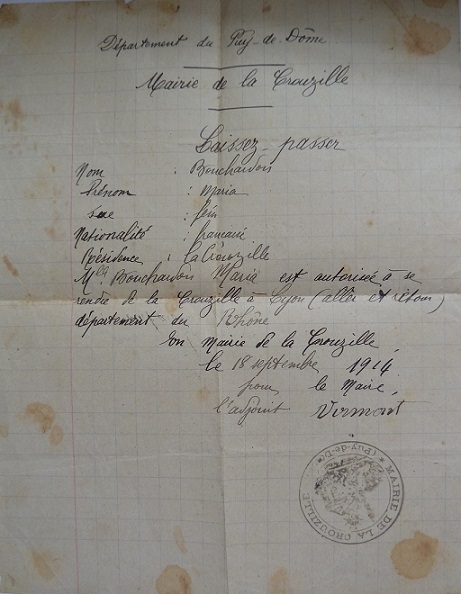 Département du Puy-de-Dôme
Mairie de la Crouzille
Laissez-passer
Nom : Bouchardon
Prénom : Maria
Sexe : fém
Nationalité : française
Résidence : La Crouzille
Mlle Bouchardon Maria est autorisée à se
rendre de la Crouzille à Lyon (aller et retour)
département du Rhône
En Mairie de la Crouzille,
le 18 septembre 1914
pour le Maire,
l'adjoint Virmont
MAIRIE DE LA CROUZILLE
(Puy-de-Dôme)